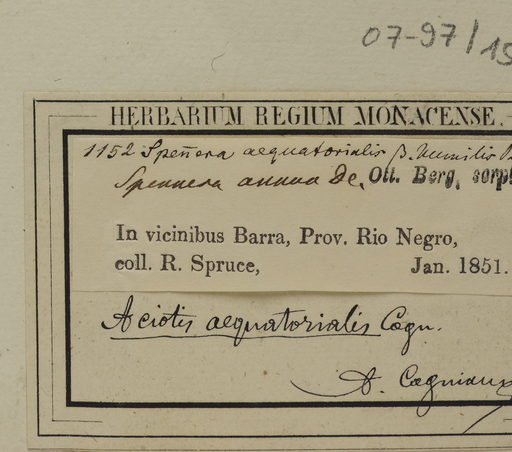 07-97/15
HERBARIUM REGIUM MONACENSE.
1152 Spennera aequatorialis β. humilis
Spennera annua De. Ott. Berg, scrps
In vicinibus Barra, Prov. Rio Negro,
coll. R. Spruce, Jan. 1851.
Aciotis aequatorialis Cogn.
A. Cogniaux